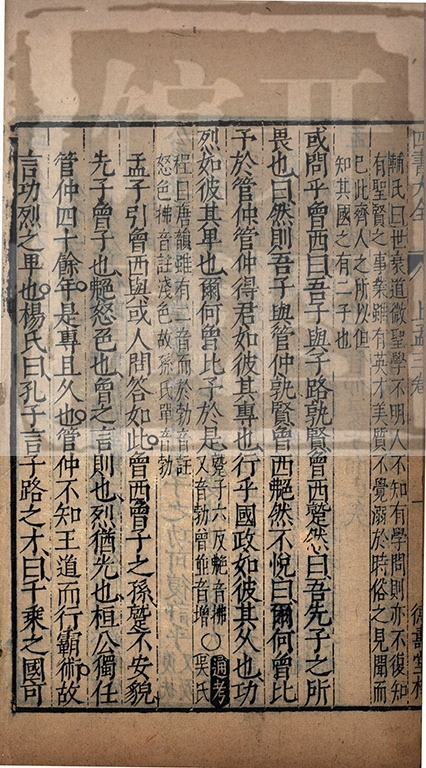 四書大全
上孟三卷
輔氏曰世衰道微聖學不明人不知有學問則亦不復知
有聖賢之事業雖有英才美質不覺溺於時俗之見聞而
已此齊人之所以但
知其國之有二子也
或問乎曾西曰吾子與子路孰賢曾西蹵然曰吾先子之所
畏也曰然則吾子與管仲孰賢曾西艴然不悅曰爾何曾比
予於管仲管仲得君如彼其專也行乎國政如彼其久也功
烈如彼其卑也爾何曾比予於是
蹵子六反艴音拂
又音勃曾並音增
○
吳氏
通考
程曰唐韻雖有二音而於勃音註
怒色拂音註淺色故孫氏單音勃
孟子引曾西與或人問答如此曾西曾子之孫蹵不安貌
先子曾子也艴怒色也曾之言則也烈猶光也桓公獨任
管仲四十餘年是專且久也管仲不知王道而行霸術故
言功烈之卑也楊氏曰孔子言子路之才曰千乘之國可